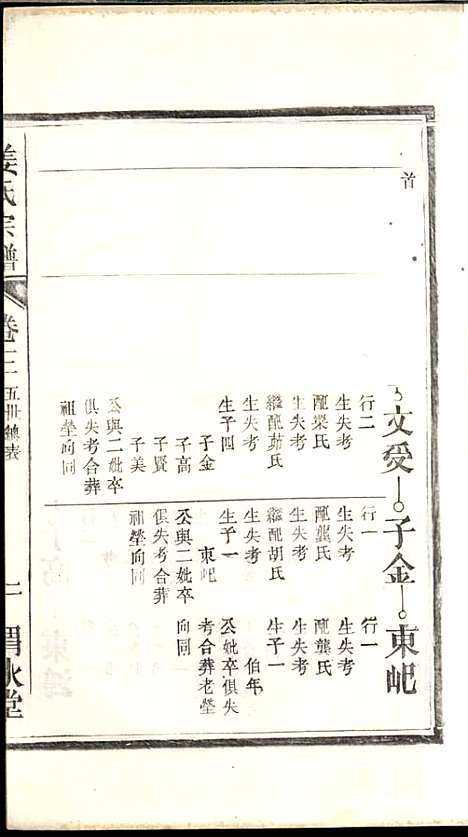 首
文受
子金
東屺
行二
生失考
配梁氏
生失考
繼配茹氏
生失考
生子四
子金
子高
子賢
子美
公與二妣卒
俱失考合葬
祖塋向同
行一
生失考
配龔氏
生失考
繼配胡氏
生失考
生子一
東屺
公與二妣卒
俱失考合葬
祖塋向同
行一
生失考
配龔氏
生失考
生子一
伯年
公妣卒俱失
考合葬老塋
向同
姜氏宗譜
卷三
五世總表
一
渭水堂